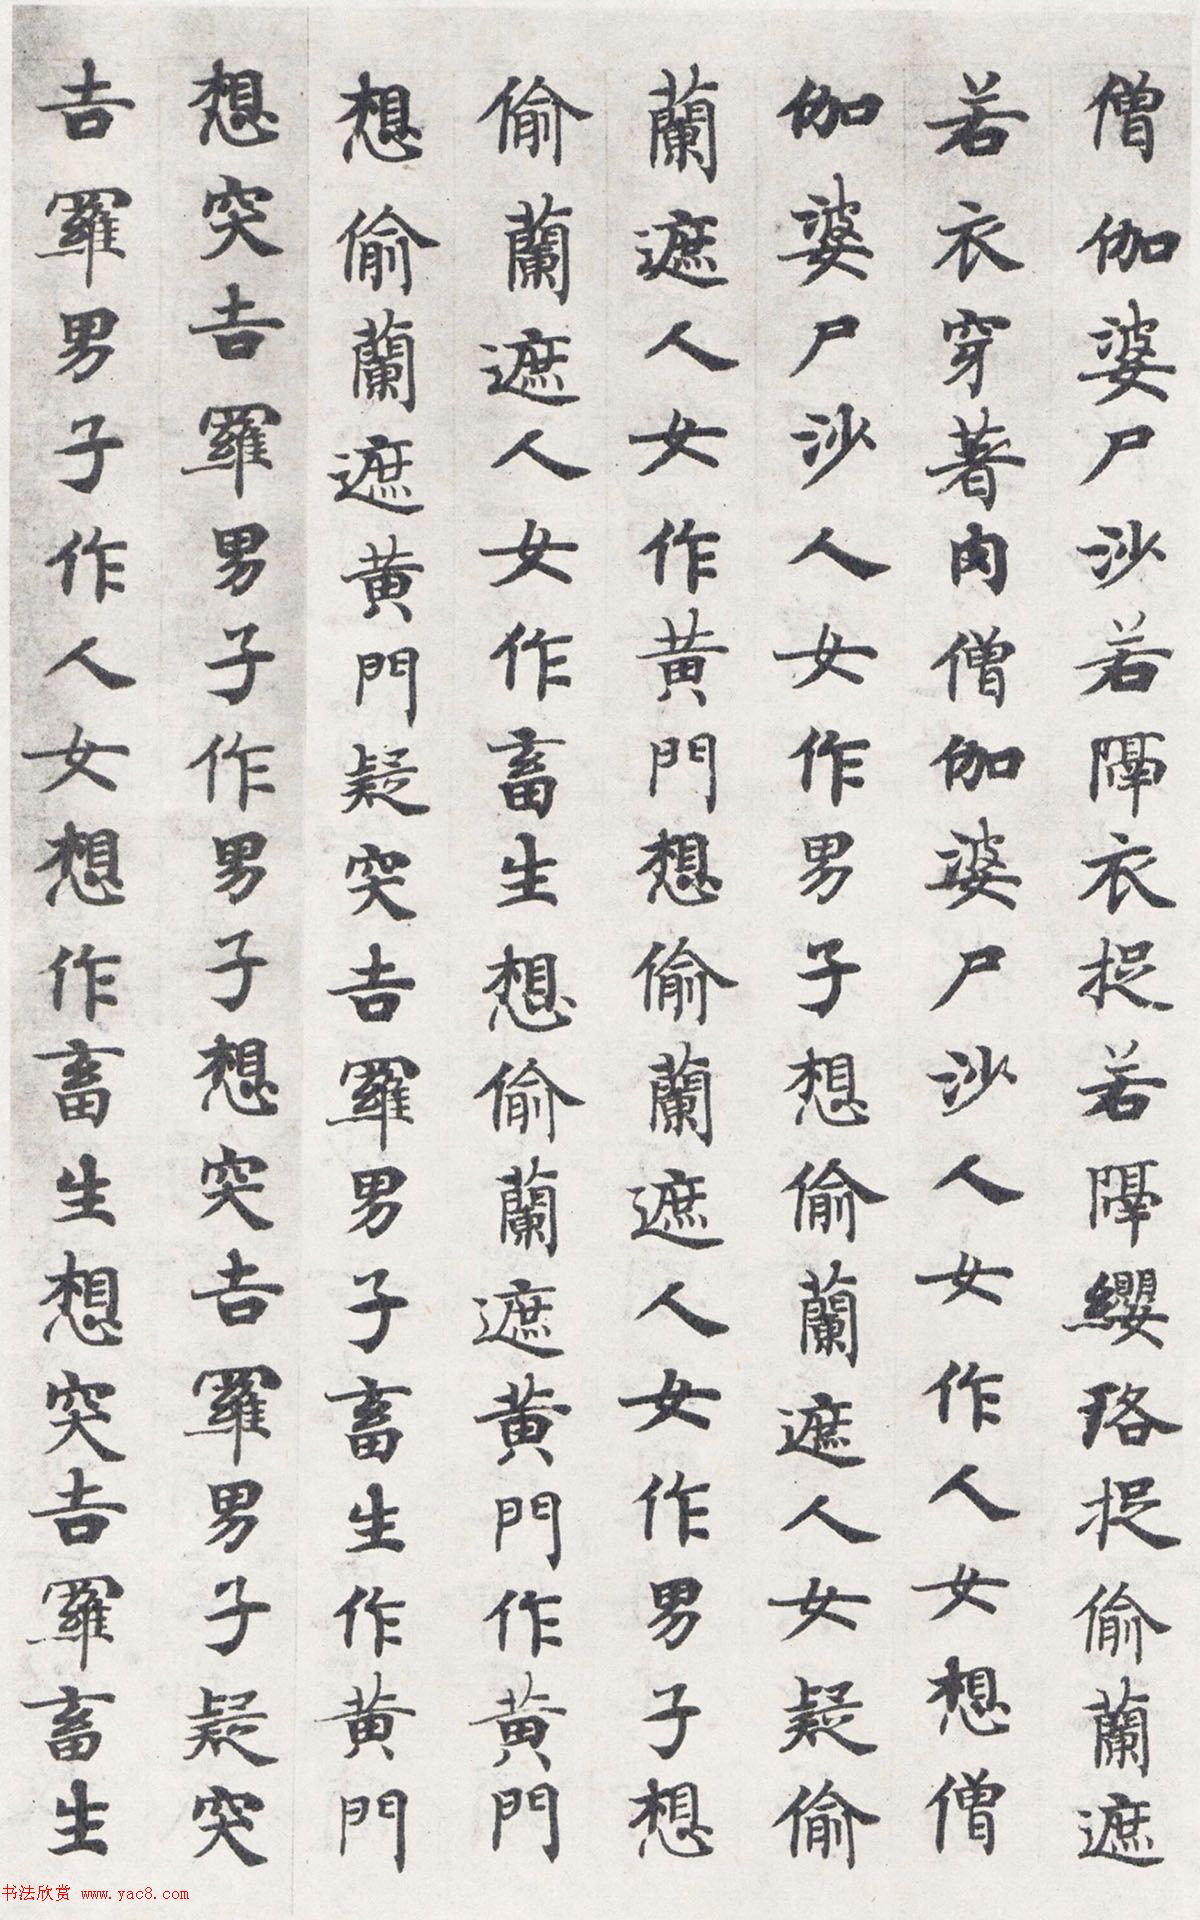 僧伽婆尸沙若障衣捉若障纓珞捉偷蘭遮
若衣穿著肉僧伽婆尸沙人女作人女想僧
伽婆尸沙人女作男子想偷蘭遮人女疑偷
蘭遮人女作黄門想偷蘭遮人女作男子想
偷蘭遮人女作畜生想偷蘭遮黄門作黄門
想偷蘭遮黄門疑突吉羅男子畜生作黄門
想突吉羅男子作男子想突吉羅男子疑突
吉羅男子作人女想作畜生想突吉羅畜生
书法欣赏 www.yac8.com